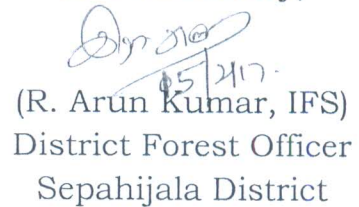 (R. Arun Kumar, IFS)
District Forest Officer
Sepahijala District